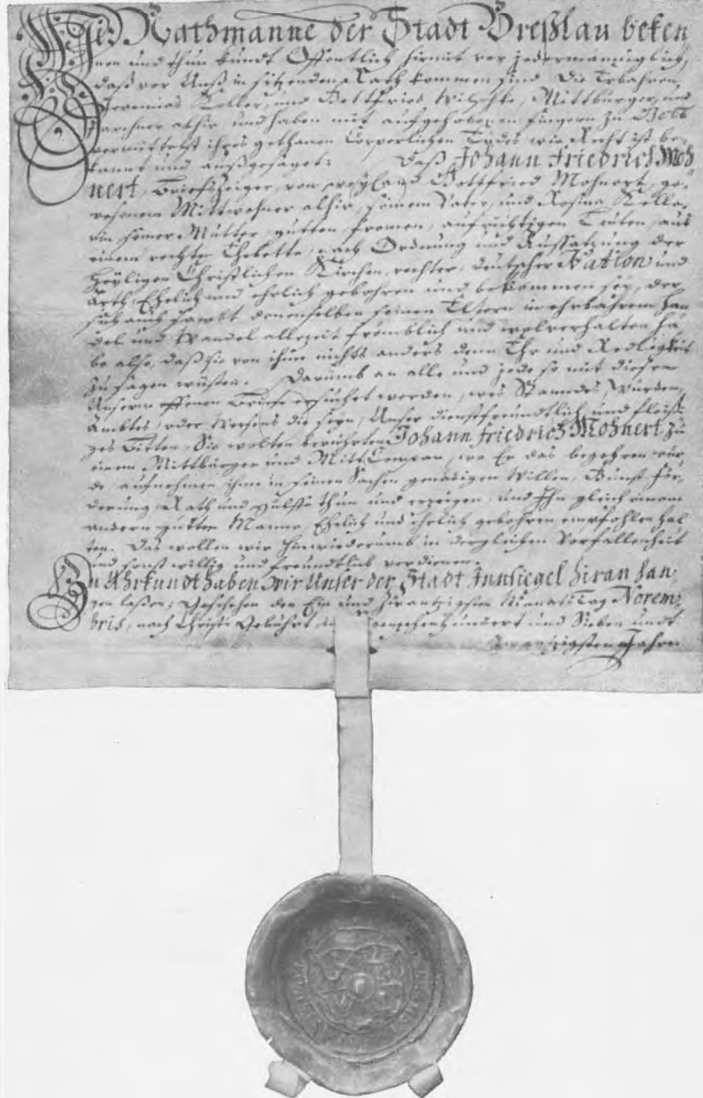 Wir Rathmanne der Stadt Breßlau beken
nen und thun kundt Offentlich hirmit vor jedermänniglich,
daß vor Unß in sitzenden Rath kommen sind Die Erbahren,
Jeremias Keller, und Gottfried Mitbürger, und
alhir, und haben mit aufgehobenen fingern zu Gott
vermittelst ihres gethanen Cörperlichen Eydes wie Recht ist be
kannt und außgesaget: Daß Johann Friedrich Moh
nert, Brieffszeiger, von weyland Gottfried Mohnert, ge
wesenem Mittwohner alhir, seinem Vater, und Rosina
in seiner Mutter, gutten, fromen, aufrichtigen Leuten, aus
einem rechten Ehebette, nach Ordnung und Aussatzung der
Heyligen Christlichen Kirchen, rechter, deutscher Nation und
Arth, Ehelich und ehrlich gebohren und bekommen sey, der
sich auch sambt denenselben seinen Eltern in ehrbahrem Han
del und Wandel allezeit frömblich und wolverhalten ha
be also, daß sie von ihme nichts anders denn Ehr und Redligkeit
zu sagen wüsten. Darumb an alle und jede so mit diesem
Unserm offenen Brieff ersuchet werden, wes Standes, Würden,
Ambtes, oder Wesens die seyn, Unser dienstfreundtlich und fleißi
ges Bitten, Sie wolten berührten Johann Friedrich Mohnert zu
einem Mittbürger und MittCompan, wo Er das begehren wür
de aufnehmen ihm in seinen Sachen genädigen Willen, Gunst, för
derung, Rath und Hülffe thun und erzeigen, und Ihn gleich einem
andern gutten Manne, Ehelich und ehrlich gebohren empfohlen hal
ten. Das wollen wir hinwiederumb in dergleichen Vorfallenheit
und sonst willig und freundlich verdienen.
Zu Uhrkundt haben Wir Unser der Stadt Innsiegel hiran han
gen laßen; Geschehen den Ein und zwantzigsten MonatsTag Novem
bris, nach Christi Gebührt hundert und Sieben undt
zwantzigsten Jahre